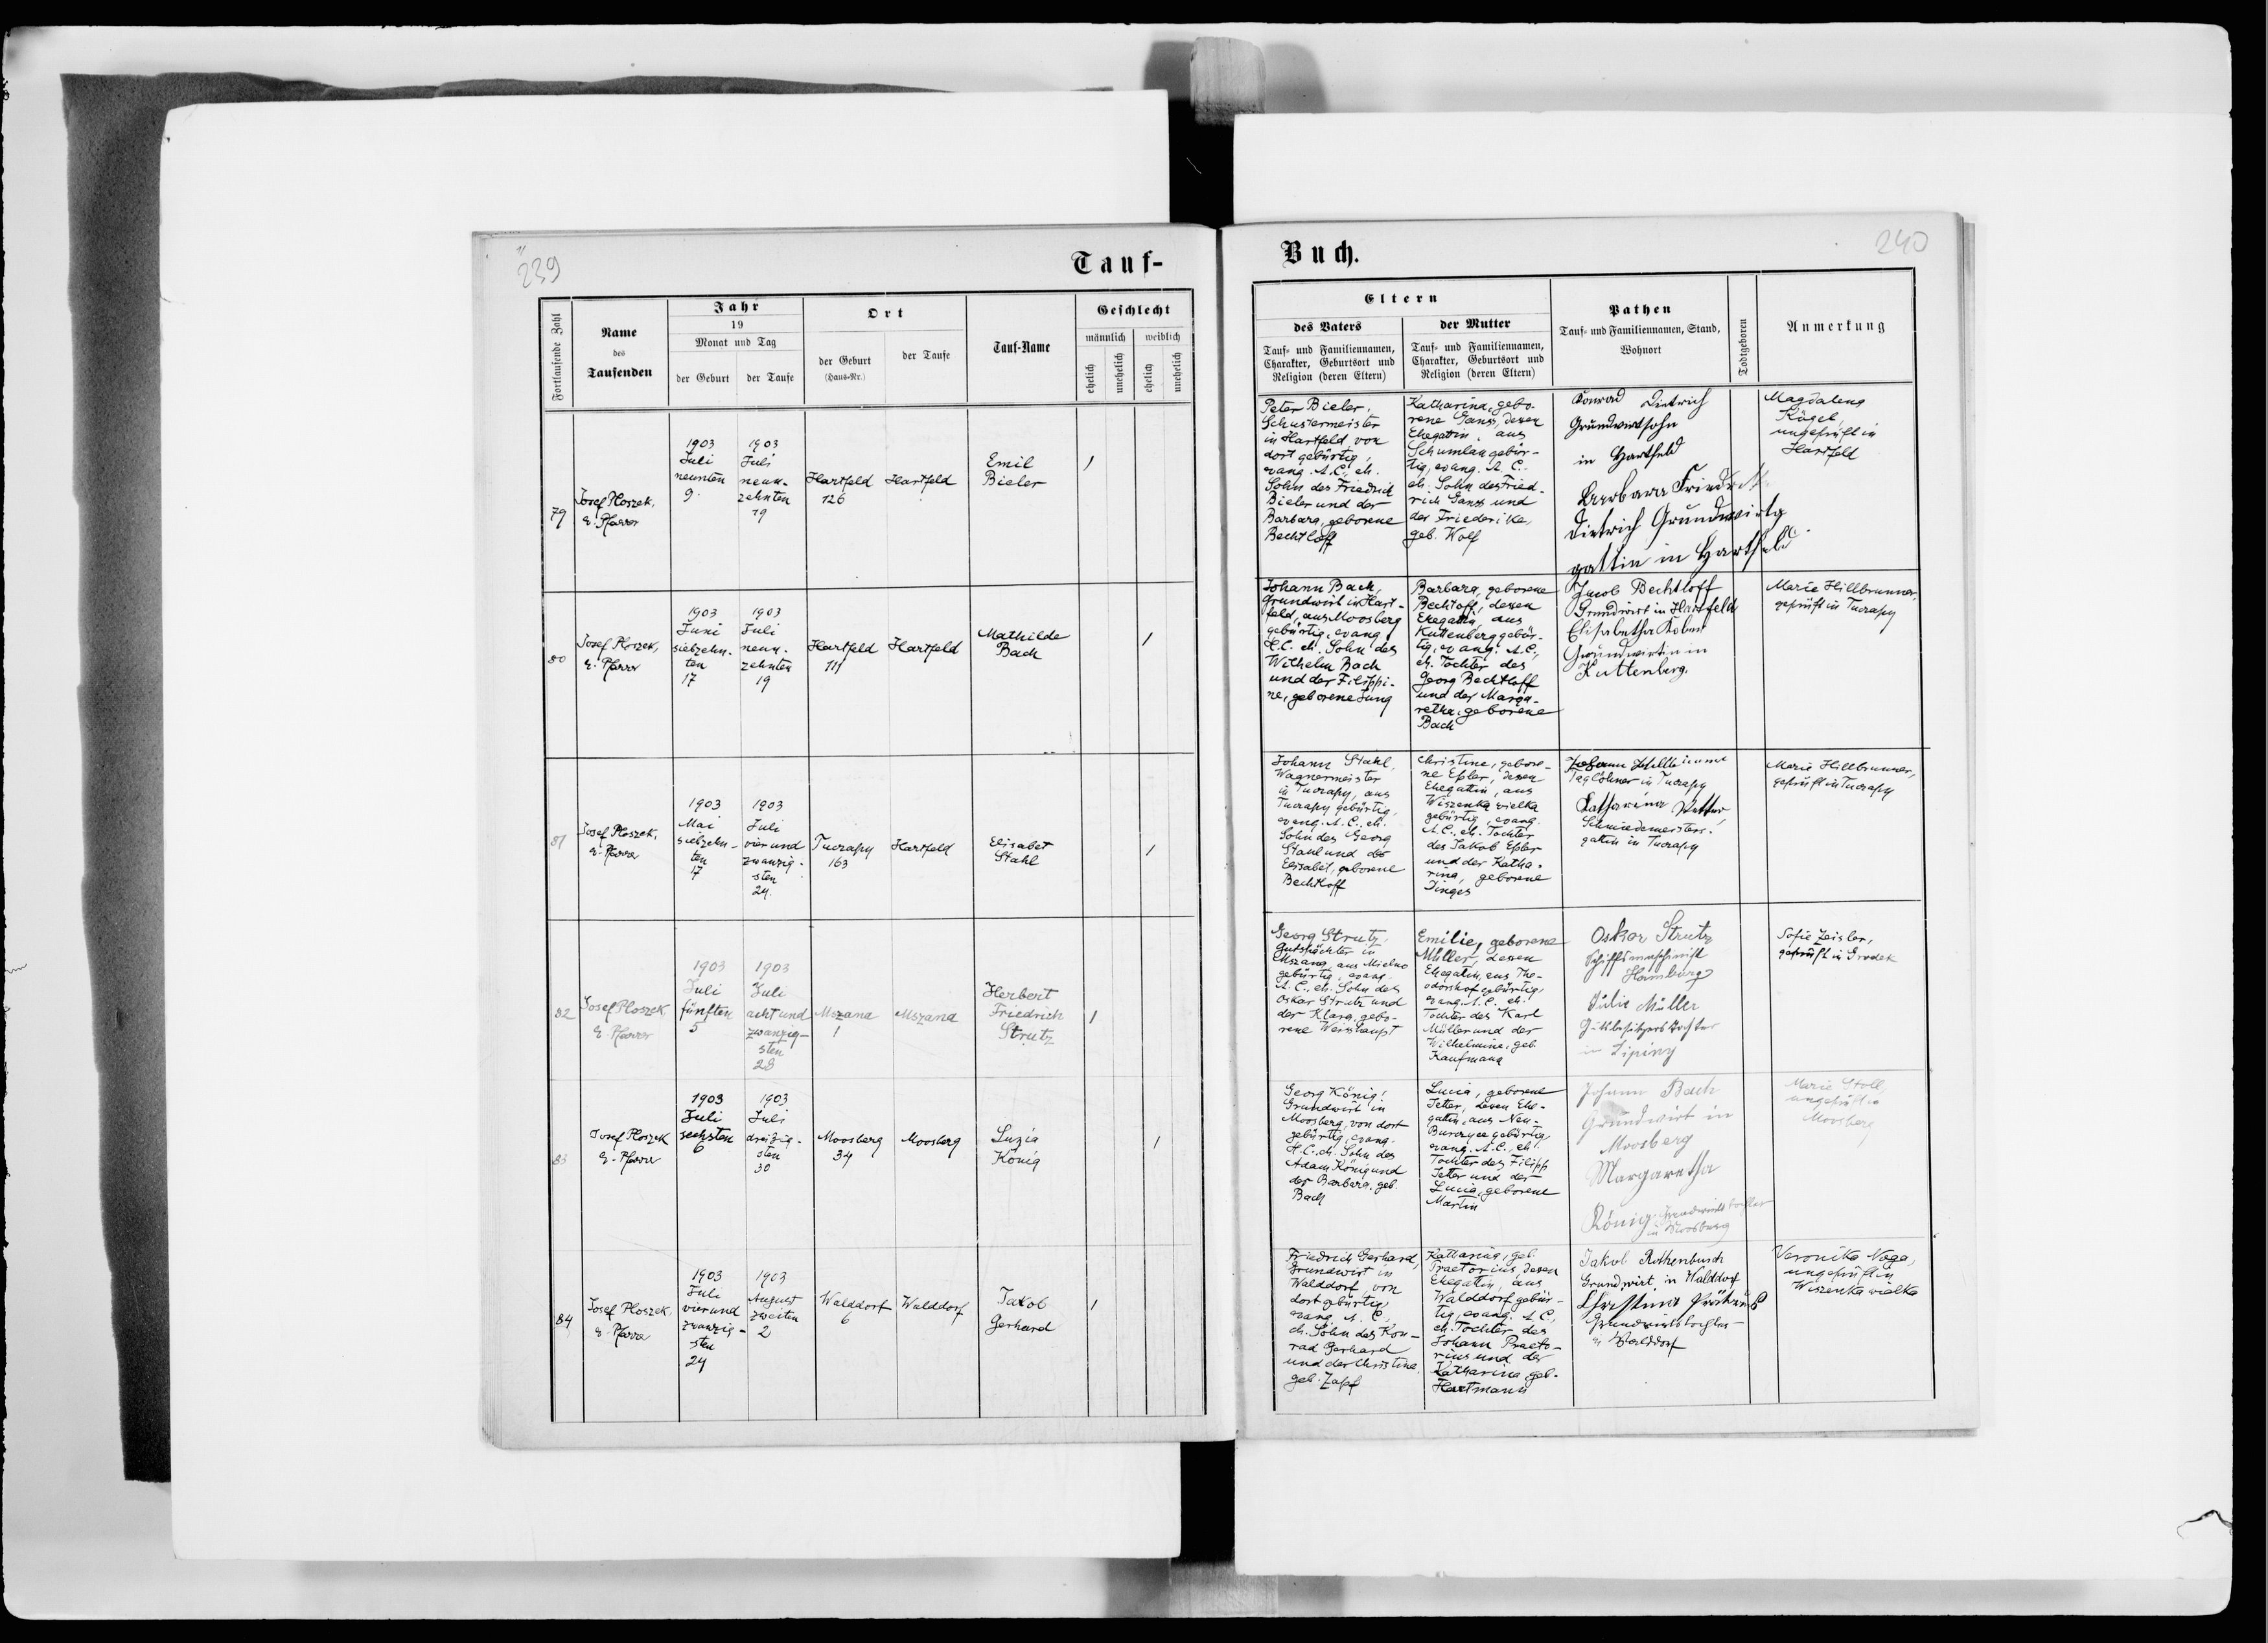 239
Tauf-
Fortlaufende Zahl
Name
des
Taufenden
Jahr
19
Monat und Tag
der Geburt
der Taufe
Ort
der Geburt
(Haus-Nr.)
der Taufe
Tauf-Name
Geschlecht
männlich
weiblich
ehelich
unehelich
ehelich
unehelich
79
Josef Ploszek,
e. Pfarrer
1903
Juli
neunten
9.
1903
Juli
neun-
zehnten
19
Hartfeld
126
Hartfeld
Emil
Bieler
1
80
Josef Ploszek,
e. Pfarrer
1903
Juni
siebzehn-
ten
17
1903
Juli
neun-
zehnten
19
Hartfeld
111
Hartfeld
Mathilde
Bach
1
81
Josef Ploszek,
e. Pfarrer
1903
Mai
siebzehn-
ten
17
1903
Juli
vier und
zwanzig-
sten
24.
Tuczapy
163
Hartfeld
Elisabet
Stahl
1
82
Josef Ploszek
e. Pfarrer
1903
Juli
fünften
5
1903
Juli
acht und
zwanzig-
sten
28
Mszana
1
Mszana
Herbert
Friedrich
Strutz
1
83
Josef Ploszek
e. Pfarrer
1903
Juli
sechsten
6
1903
Juli
dreizig-
sten
30
Moosberg
34
Moosberg
Luzia
König
1
84
Josef Ploszek
e. Pfarrer
1903
Juli
vierund
zwanzig-
sten
24
1903
August
zweiten
2
Walddorf
6
Walddorf
Jakob
Gerhard
1
Buch.
240
Eltern
des Vaters
Tauf- und Familiennamen,
Charakter, Geburtsort und
Religion (deren Eltern)
der Mutter
Tauf- und Familiennamen,
Charakter, Geburtsort und
Religion (deren Eltern)
Pathen
Tauf- und Familiennamen, Stand,
Wohnort
Todtgeboren
Anmerkung
Peter Bieler,
Schustermeister
in Hartfeld, von
dort gebürtig,
evang. A.C., eh.
Sohn des Friedrich
Bieler und der
Barbara, geborene
Bechtloff
Katharina, gebo-
rene Ganz, dessen
Ehegattin, aus
Schumlau gebür-
tig, evang. A. C.
eh. Sohn des Fried-
rich Ganz und
der Friederike,
geb. Wolf
Konrad Dietrich
Grundwirtsohn
in Hartfeld
Barbara
Dietrich Grundwirts
gattin in Hartfeld
Magdalena
Kögel,
ungeprüft in
Hartfeld
Johann Bach,
Grundwirt in Hart-
feld, aus Moosberg
gebürtig, evang.
H.C. eh. Sohn des
Wilhelm Bach
und der Filippi-
ne, geborene Jung
Barbara, geborene
Bechtloff, dessen
Ehegattin, aus
Kuttenberg gebür-
tig, evang. A.C.,
eh. Tochter des
Georg Bechtloff
und der Marga-
retha, geborene
Bach
Jacob Bechtloff
Grundwirt in Hartfeld
Elisabetha Kolmer
Grundwirtin in
Kuttenberg.
Marie Hillbrunner,
geprüft in Tuczapy
Johann Stahl,
Wagnermeister
in Tuczapy, aus
Tuczapy gebürtig,
evang. A.C., eh.
Sohn des Georg
Stahl und der
Elisabet, geborene
Bechtloff
Christine, gebore-
ne Epler, dessen
Ehegattin, aus
Wiszenka wielka
gebürtig, evang.
A.C., eh. Tochter
des Jakob Epler
und der Katha-
rina, geborene
Dinges
Johann
Taglöhner in Tuczapy
Katharina Vetter
Schmiedemeisters-
gattin in Tuczapy
Marie Hillbrunner,
geprüft in Tuczapy
Georg Strutz,
Gutspächter in
Mszana, aus Mielno
gebürtig, evang.
A.C., eh. Sohn des
Oskar Strutz und
der Klara, gebo-
rene Weishaupt
Emilie, geborene
Müller, dessen
Ehegattin, aus The-
odorshof gebürtig,
evang. A.C. eh.
Tochter des Karl
Müller und der
Wilhelmine, geb.
Kaufmann
Oskar Strutz
Schiffsmaschinist
Hamburg
Julie Müller
Gutsbesitzers Tochter
in Lipiny
Sofie Zeisler,
geprüft in Grodek
Georg König,
Grundwirt in
Moosberg, von dort
gebürtig, evang.
H.C., eh. Sohn des
Adam König und
der Barbara, geb.
Bach
Lucia, geborene
Jetter, dessen Ehe-
gattin, aus Neu-
Burczyce gebürtig,
evang. A.C., eh.
Tochter des Filipp
Jetter und der
Lucia, geborene
Martin
Johann Bach
Grundwirt in
Moosberg
Margaretha
König, Grundwirtstochter
in Moosberg
Marie Stoll,
ungeprüft in
Moosberg
Friedrich Gerhard,
Grundwirt in
Walddorf, von
dort gebürtig,
evang. A. C.,
eh. Sohn des Kon-
rad Gerhard
und der Christine,
geb. Zapf
Katharina, geb.
Praetorius, dessen
Ehegattin, aus
Walddorf gebür-
tig, evang. A.C.,
eh. Tochter des
Johann Praeto-
rius und der
Katharina, geb.
Hartmann
Jakob Rothenbusch
Grundwirt in Walddorf
Christina
Grundwirtstochter
in Walddorf
Veronika Naga,
ungeprüft in
Wiszenka wielka